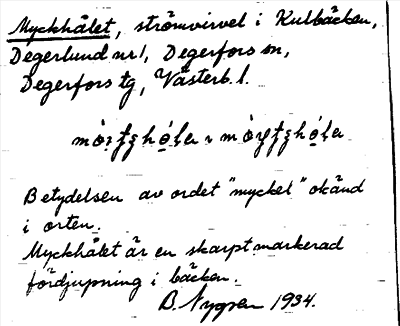 Myckhålet, strömvirvel i Kulbäcken,
Degerlund nr 1, Degerfors sn,
Degerfors tg, Västerb. l.
Betydelsen av ordet "myckel" okänd
i orten.
Myckhålet är en skarpt markerad
fördjupning i bäcken.
B. Nygren 1934.